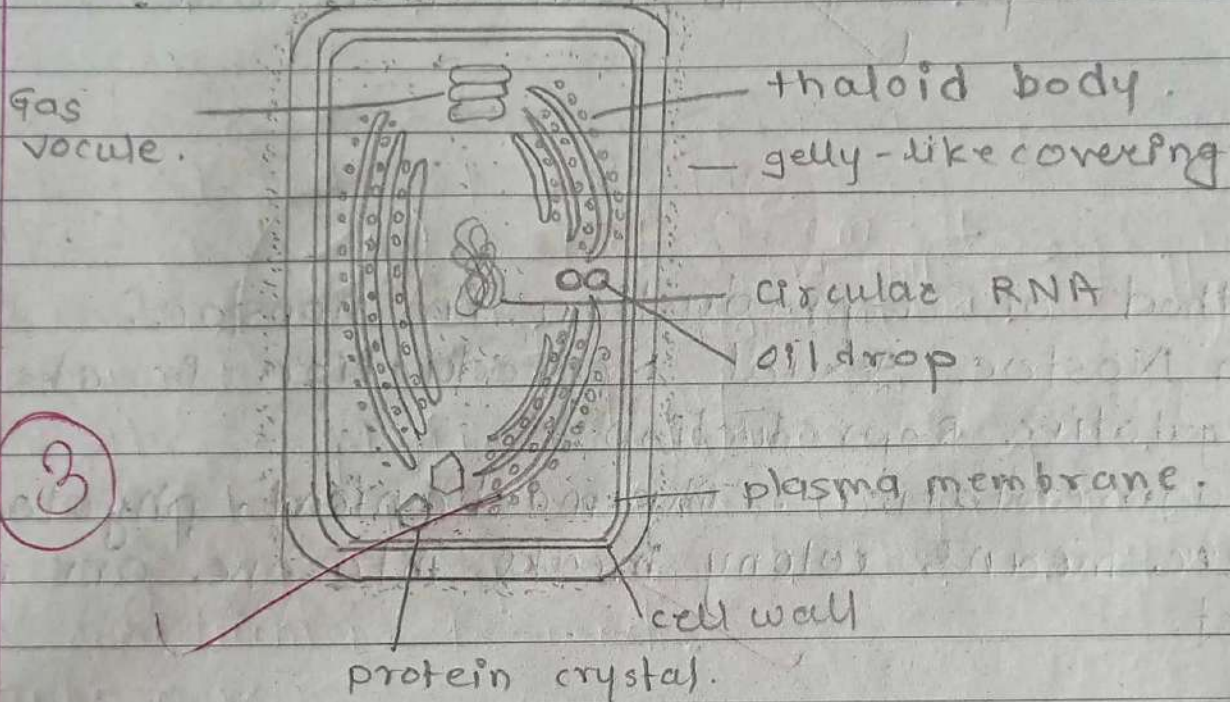 Gas
vocule.
thaloid body.
gelly-like covering
circular RNA
oil drop
plasma membrane.
3
cell wall
protein crystal.